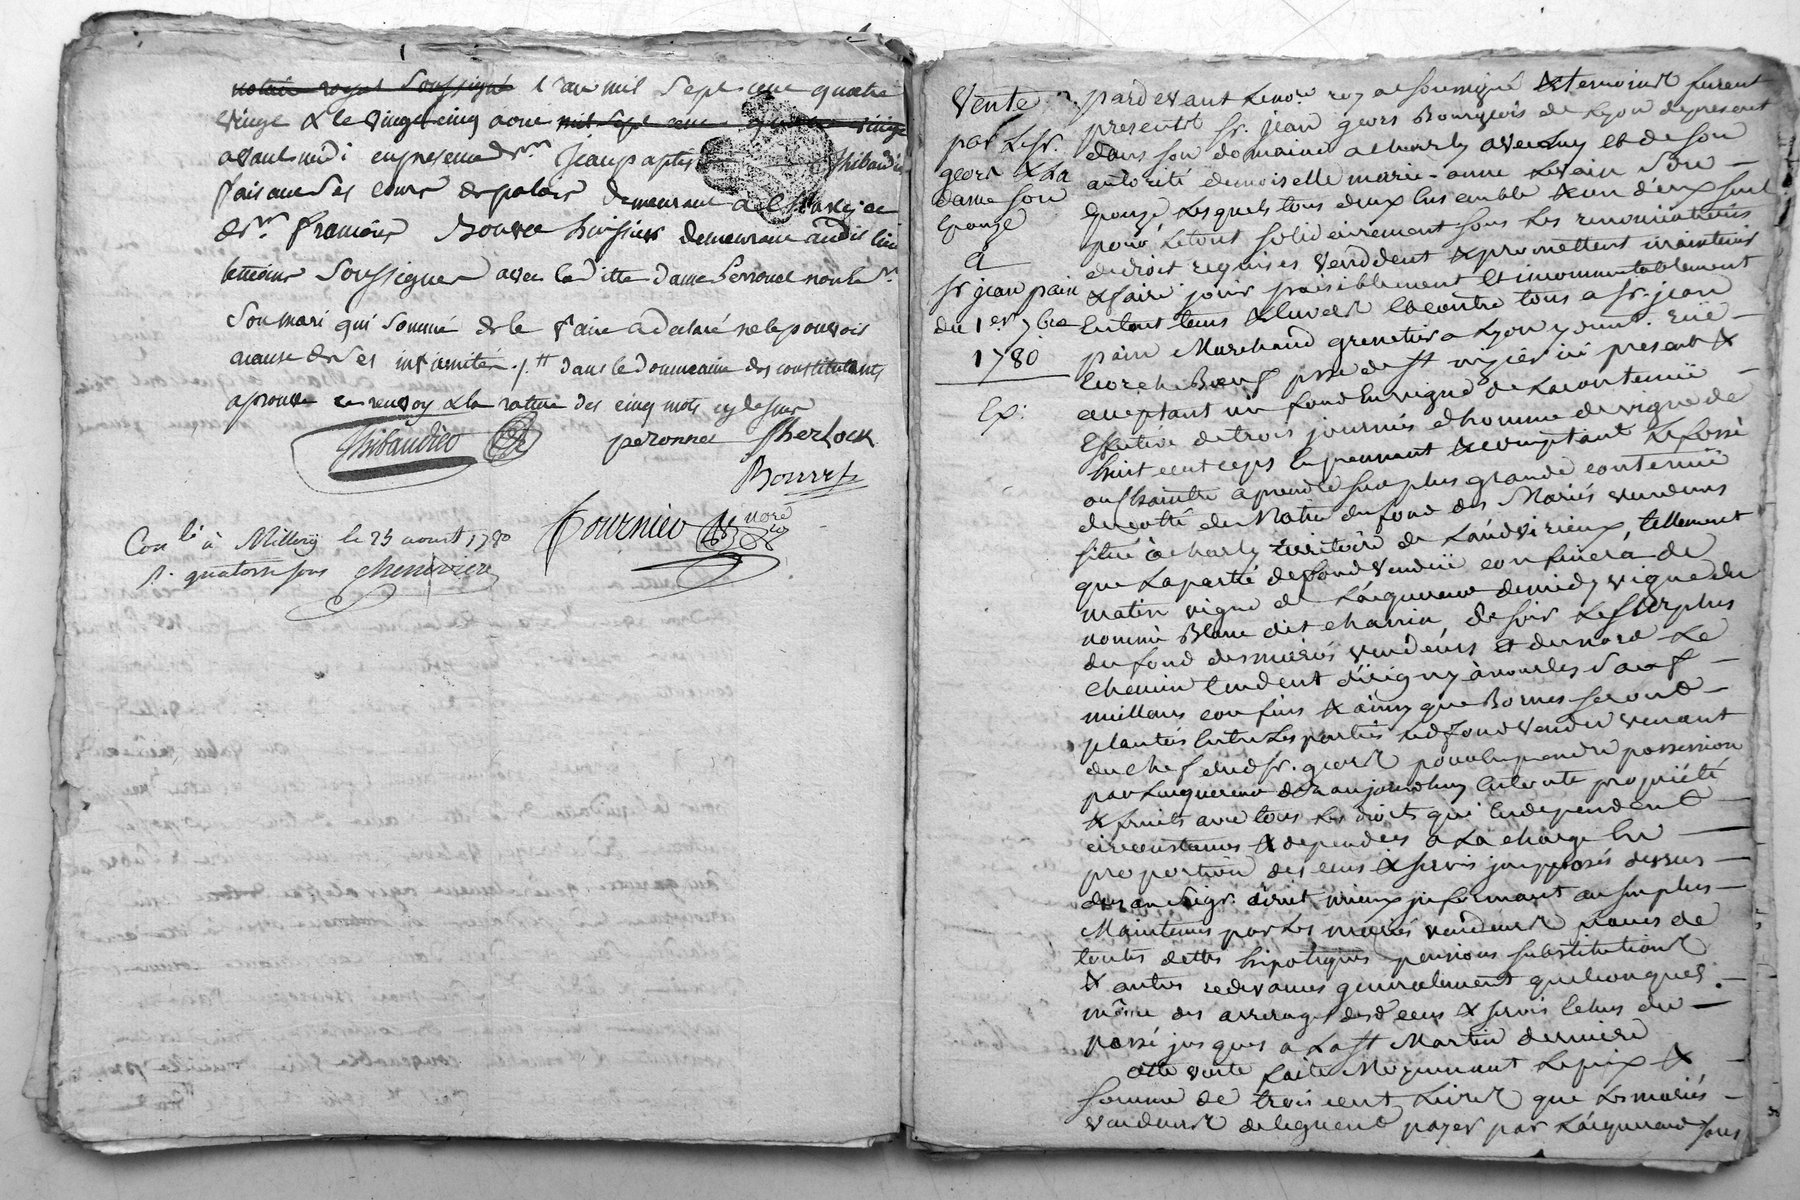 notaire royal soussigné l'an mil sept cent quatre
vingt & le vingt cinq aout mil sept cent quatre vingt
avant midi en presence de sr. Jean baptiste Thibaudier
faisant ses cours de palais demeurant à
& sr. françois Bourret huissier demeurant audit lieu
temoins soussignes avec laditte dame Peronnet non led. sr.
son mari qui sommé de le faire a declaré ne le pouvoir
a cause de ses infirmités ./. tt dans le domicaine des constituants
aprouvé ce renvoy & la rature des cinq mots cy dessus
Thibaudier peronnet Sherlock
Bourret
fournier nore
Con.lé à Millery le 25 aoust 1780
R. quatorze sous chenevier
Vente
par le sr.
geors & La
dame son
Epouze
a
sr jean pain
du 1er 7bre
1780
Ex:
pardevant Le no.re royal soussigné & temoins furent
presents sr. jean geors Bourgeois de Lyon de present
dans son domaine a charly avec luy et de son
autorité demoiselle marie-anne Levain son
Epouze Lesquels tous deux Ensemble & un d'eux seul
pour Le tout solidairement sous Les renonciations
de droit requises vendent & promettent maintenir
& faire jouir paisiblement Et incommutablement
En tout tems & Envers et contre tous a sr. jean
pain Marchand grenetier a Lyon y demt. rüe
Ecorche Boeuf psse de st nizier ici present &
acceptant un fond En vigne de La contenüe
Effective de trois journées d'homme de vigne de
huit cent ceps En prennant & comptant Le fossé
ou Chaintre a prendre sur plus grande contenüe
du cotté du Matin du fond des Mariés vendeurs
situé à charly territoire de Landvirieux, tellement
que La partie de fond vendüe confinera de
matin vigne de L'acquereur de midy vigne du
nommé Blanc dit charrin, de soir Le surplus
du fond des mariés vendeurs Et du nord Le
chemin tendent d'irigny à vourles sauf
meilleurs confins & ainsy que Bornes seront
plantées Entre Les parties led. fond vendu venant
du chef dud. sr. geors pour En prendre possession
par L'acquereur dez aujourdhuy En toute propriété
& fruits avec tous Les droits qui En dependent
circonstances & dependces a La charge En
proportion des cens & servis imposés dessus
dus au seigr. direct mieux informant au surplus
Maintenus par Les mariés vendeurs francs de
toutes dettes hipoteques pensions substitutions
& autres redevances generalement quelconques
même des arrerages desd. cens & servis Echus du
passé jusques a La st Martin derniere
cette vente faite Moyennant Le prix &
somme de trois cent Livres que Les mariés
vendeurs deleguent payer par L'acquereur sous